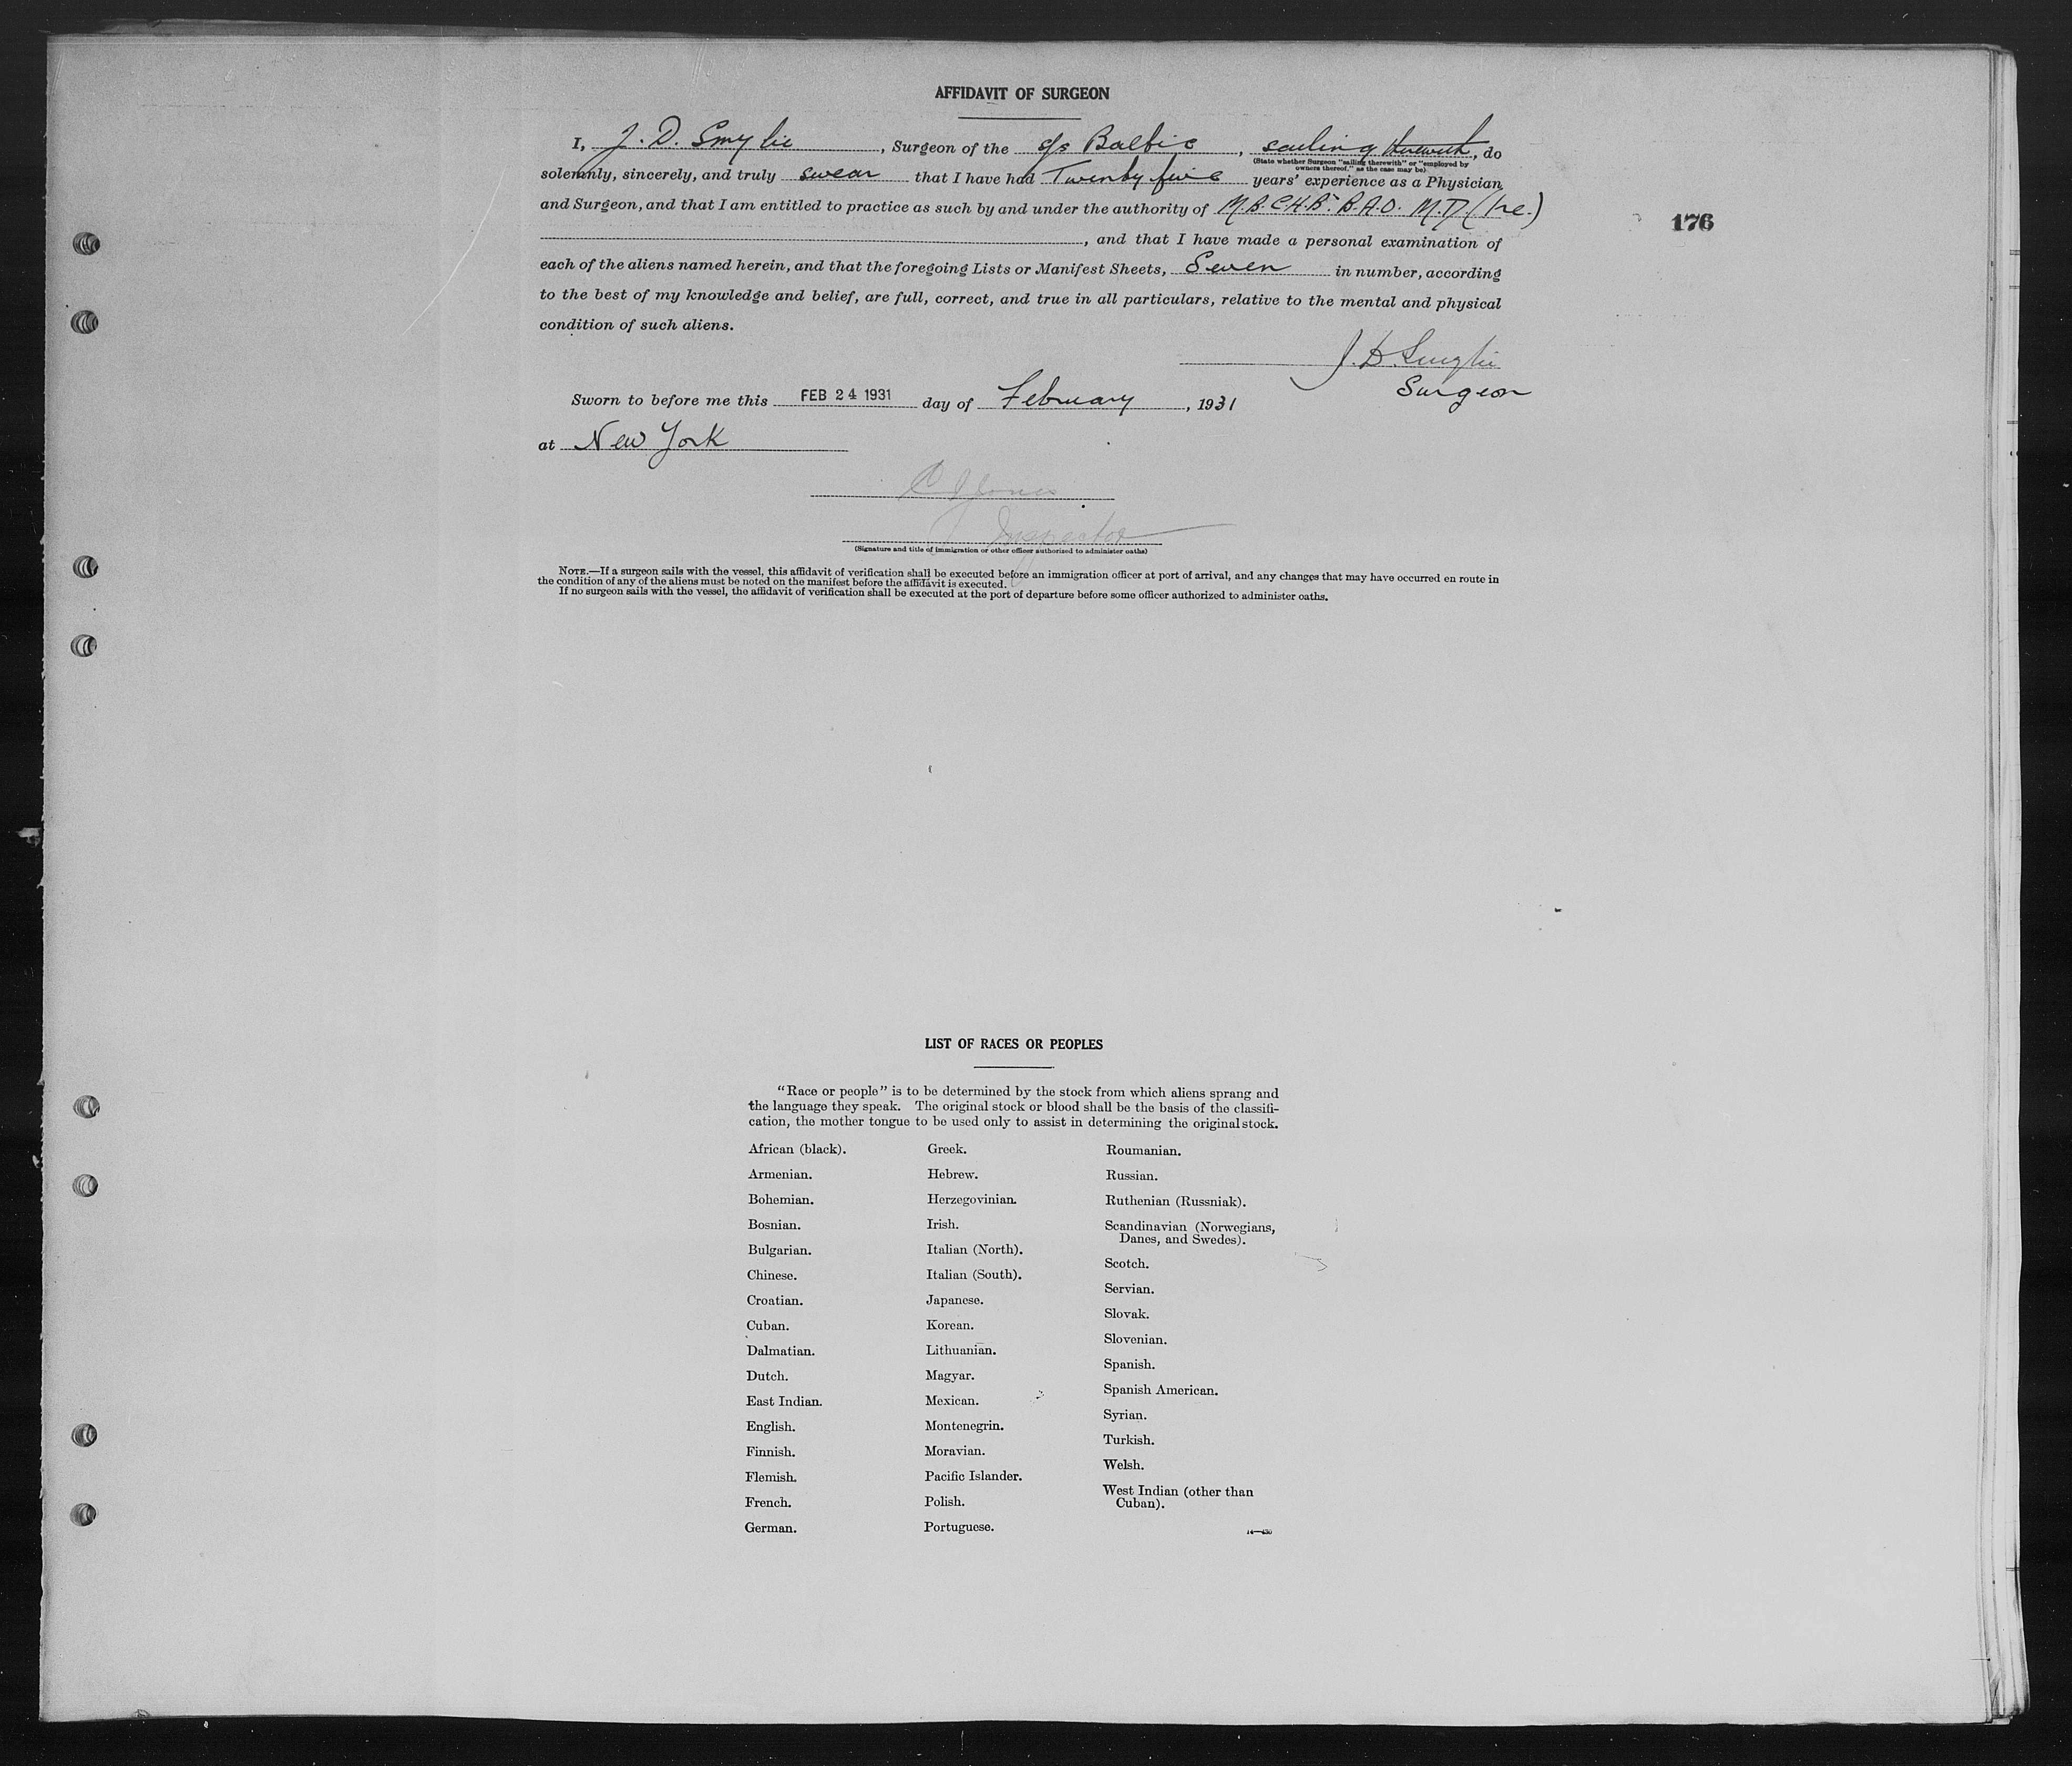 AFFIDAVIT OF SURGEON
I, J. D. Smylie, Surgeon of the s/s Baltic, sailing therewith, do
(State whether Surgeon "sailing therewith" or "employed by
owners thereof," as the case may be)
solemnly, sincerely, and truly swear that I have had Twenty five years' experience as a Physician
and Surgeon, and that I am entitled to practice as such by and under the authority of M.B. C.H.B. B.A.O. M.D. (Ire.)
176
, and that I have made a personal examination of
each of the aliens named herein, and that the foregoing Lists or Manifest Sheets, Seven in number, according
to the best of my knowledge and belief, are full, correct, and true in all particulars, relative to the mental and physical
condition of such aliens.
J. D. Smylie
Surgeon
Sworn to before me this FEB 24 1931 day of February, 1931
at New York
Jones
Inspector
(Signature and title of immigration or other officer authorized to administer oaths)
NOTE.—If a surgeon sails with the vessel, this affidavit of verification shall be executed before an immigration officer at port of arrival, and any changes that may have occurred en route in
the condition of any of the aliens must be noted on the manifest before the affidavit is executed.
If no surgeon sails with the vessel, the affidavit of verification shall be executed at the port of departure before some officer authorized to administer oaths.
LIST OF RACES OR PEOPLES
"Race or people" is to be determined by the stock from which aliens sprang and
the language they speak. The original stock or blood shall be the basis of the classifi-
cation, the mother tongue to be used only to assist in determining the original stock.
African (black).
Armenian.
Bohemian.
Bosnian.
Bulgarian.
Chinese.
Croatian.
Cuban.
Dalmatian.
Dutch.
East Indian.
English.
Finnish.
Flemish.
French.
German.
Greek.
Hebrew.
Herzegovinian.
Irish.
Italian (North).
Italian (South).
Japanese.
Korean.
Lithuanian.
Magyar.
Mexican.
Montenegrin.
Moravian.
Pacific Islander.
Polish.
Portuguese.
Roumanian.
Russian.
Ruthenian (Russniak).
Scandinavian (Norwegians,
Danes, and Swedes).
Scotch.
Servian.
Slovak.
Slovenian.
Spanish.
Spanish American.
Syrian.
Turkish.
Welsh.
West Indian (other than
Cuban).
14—430